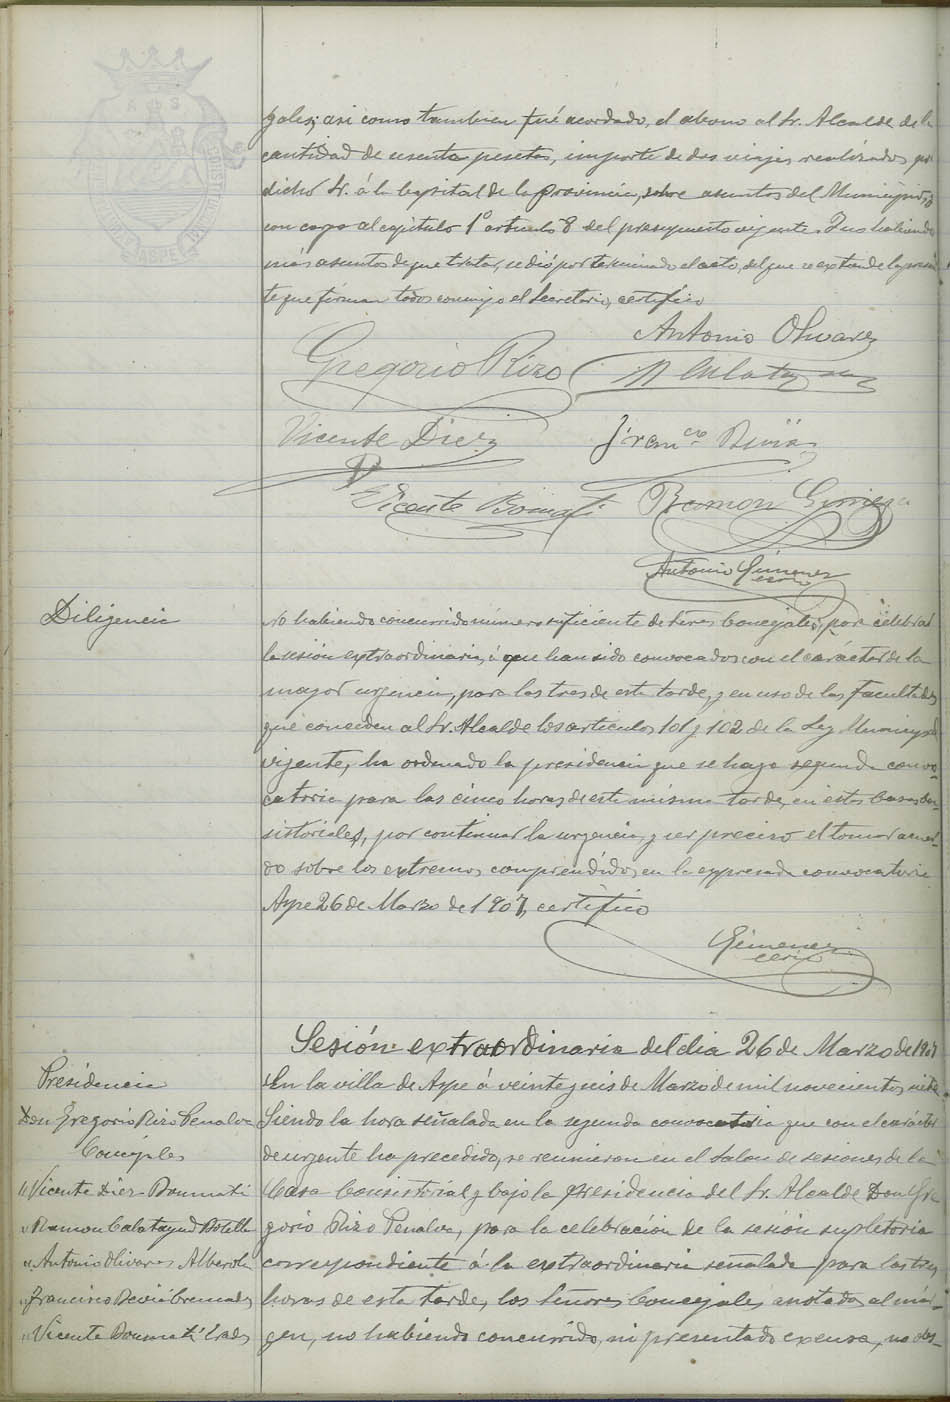 gales; asi como tambien fué acordado, el abono al Sr. Alcalde de la
cantidad de sesenta pesetas, importe de dos viajes realizados por
dicho Sr. á la Capital de la provincia, sobre asuntos del Municipio, y
con cargo al capitulo 1º articulo 8 del presupuesto vigente. Y no habiendo
más asuntos de que tratar, se dió por terminado el acto, del que se extiende la presen-
te que firman todos conmigo el Secretario, certifico
Antonio Olivares
Gregorio Rizo
R Calatayud
Vicente Diez
Francco Deviá
Vicente Boumati
Ramon Gimenez
Antonio Gimenez
secrio
Diligencia
No habiendo concurrido número suficiente de Sres Concejales, para celebrar
la sesión extraordinaria, á que han sido convocados con el carácter de la
mayor urgencia, para las tres de esta tarde, y en uso de las facultades
que conceden al Sr. Alcalde los articulos 101 y 102 de la Ley Municipal
vigente, ha ordenado la presidencia que se haga segunda convo-
catoria para las cinco horas de este misma tarde, en estas Casas Con-
sistoriales, por continuar la urgencia, y ser preciso el tomar acuer-
do sobre los extremos comprendidos en la expresada convocatoria
Aspe 26 de Marzo de 1907, certifico
Gimenez
secrio
Sesión extraordinaria del dia 26 de Marzo de 1907
Presidencia
Don Gregorio Rizo Penalva
Concejales
" Vicente Diez Boumati
" Ramon Calatayud Botella
" Antonio Olivares Alberola
" Francisco Deviá Cremades
" Vicente Boumati Erades
En la villa de Aspe á veinte y seis de Marzo de mil novecientos siete
Siendo la hora señalada en la segunda convocatoria que con el carácter
de urgente ha precedido, se reunieron en el Salon de sesiones de la
Casa Consistorial y bajo la presidencia del Sr. Alcalde Don Gre-
gorio Rizo Penalva, para la celebración de la sesión supletoria
correspondiente á la extraordinaria señalada para las tres
horas de esta tarde, los Señores Concejales anotados al mar-
gen, no habiendo concurrido, ni presentado excusa, no obs-